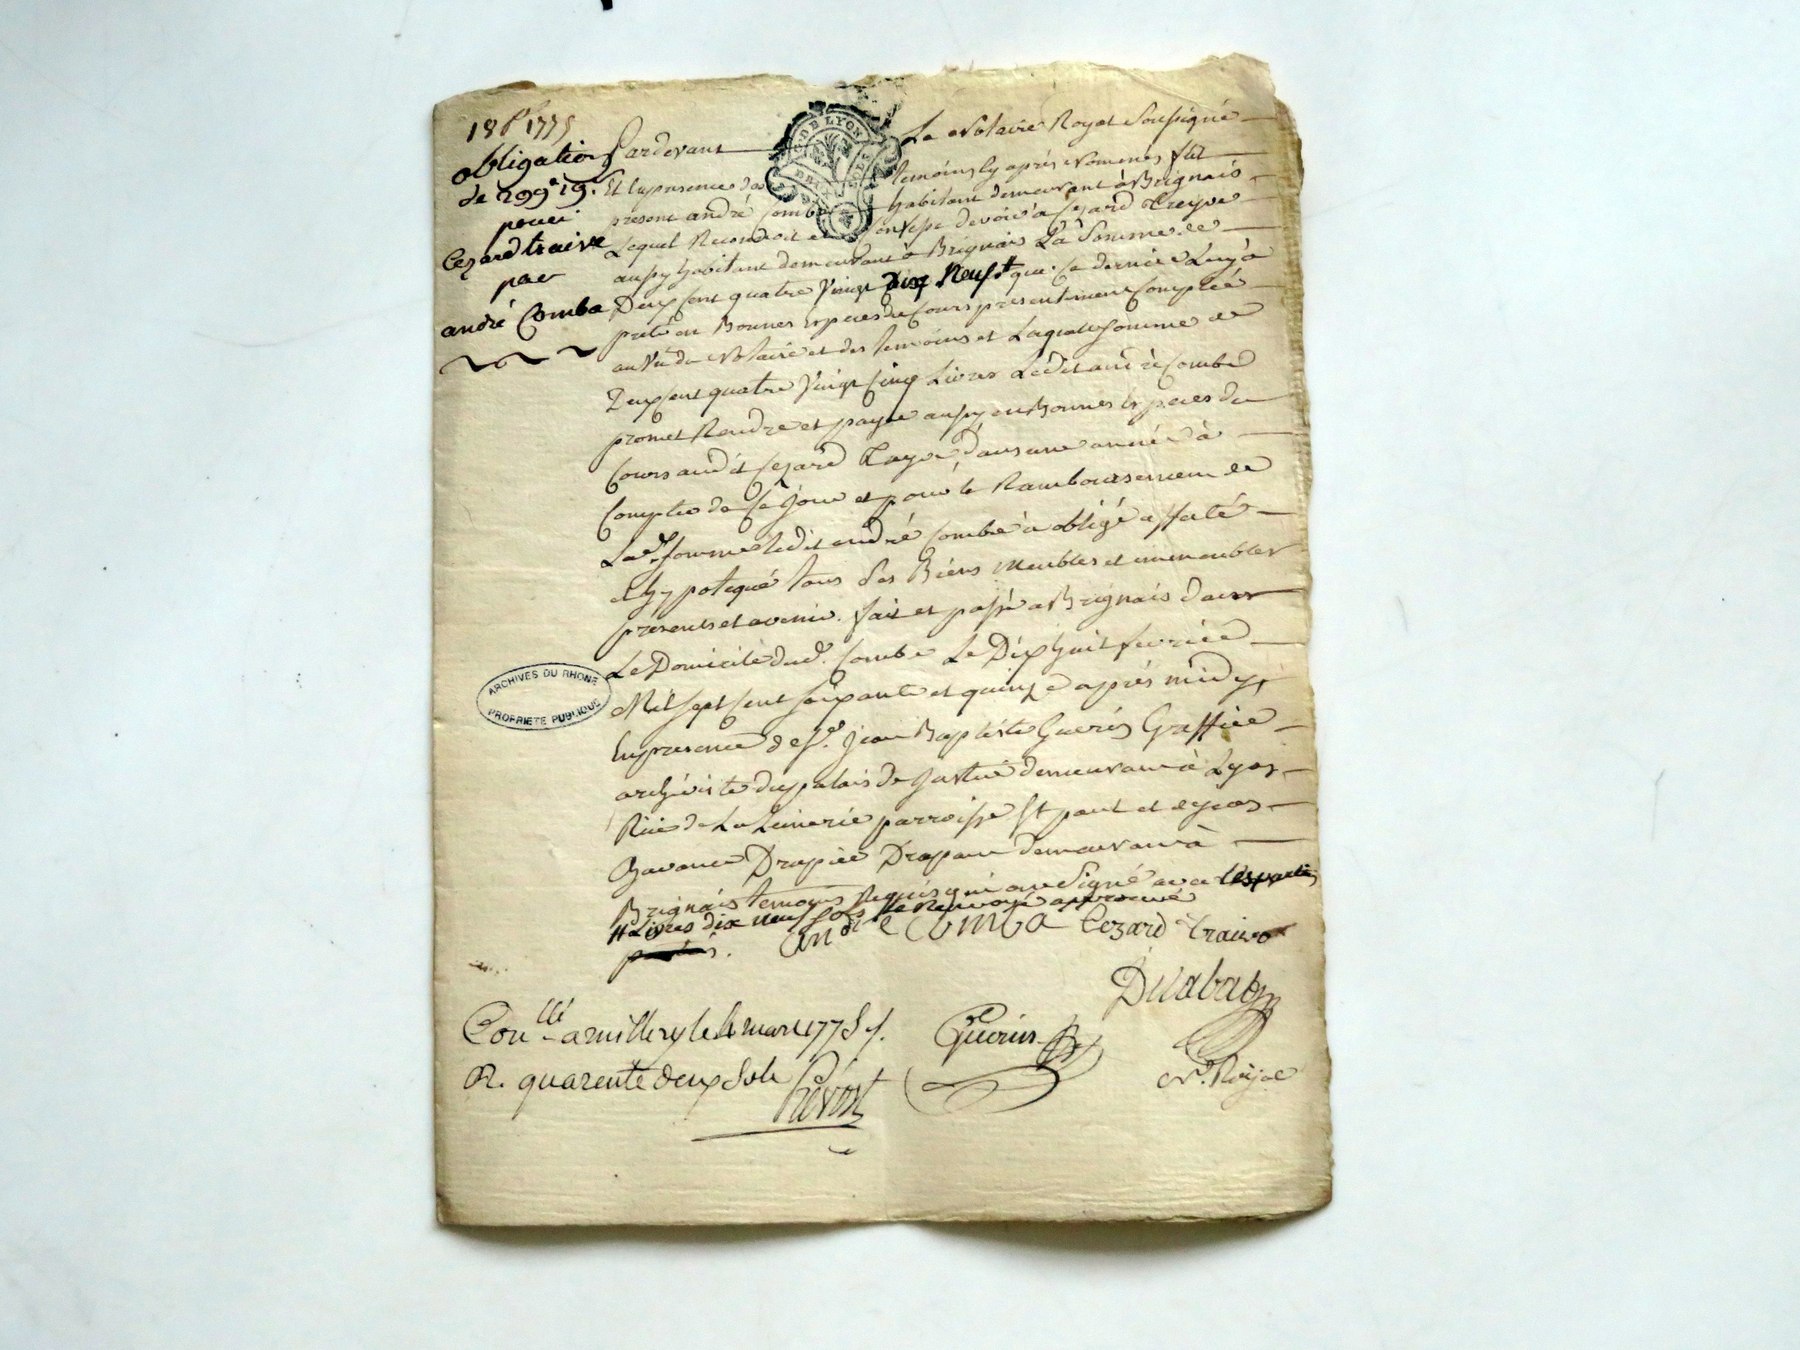 18 f 1775
obligation
de 299# 19s
pour
Cezard traive
par
andré Comba
G. DE LYON
Pardevant Le Notaire Royal Soussigné
Et En presence des temoins Cy après Nommés fut
present andré Comba habitant demeurant à Brignais
Lequel Reconnoit et Confesse devoir à Cezard Treyve
aussy habitant demeurant à Brignais La Somme de
Deux Cent quatre Vingt Dix Neuf # que Ce dernier Luy a
preté en Bonnes Especes du Cours presentement Comptée
au Vu du Notaire et des temoins et Laquelle Somme de
Deux Cent quatre Vingt Cinq Livres Ledit andré Combe
promet Rendre et payer aussy en Bonnes Especes du
Cours audit Cezard Trayve dans une année à
Compter de Ce Jour et pour le Remboursement de
Lad. somme Ledit andré Combe à obligé affecté
et hypotequé tous Ses Biens Meubles et immeubles
presents et avenir. fait et passé a Brignais dans
Le Domicile dud. Combe Le Dix huit fevrier
Mil Sept Cent Soixante et quinze après midy
En presence de Sr. Jean Baptiste Guerin Greffier
archiviste du palais de Justice demeurant à Lyon
Rüe de La Lainerie parroisse St paul et de
Drapier Drapant demeurant à
Brignais temoins Requis qui ont Signé avec les parties
# Livres dix neuf sols le Renvoy approuvé
parties.
André Comba Cezard traive
Duvabat
Guerin
No. Royal
Conllé a millery le 4 mars 1775
R. quarente deux Sols
Prévost
ARCHIVES DU RHONE
PROPRIETE PUBLIQUE